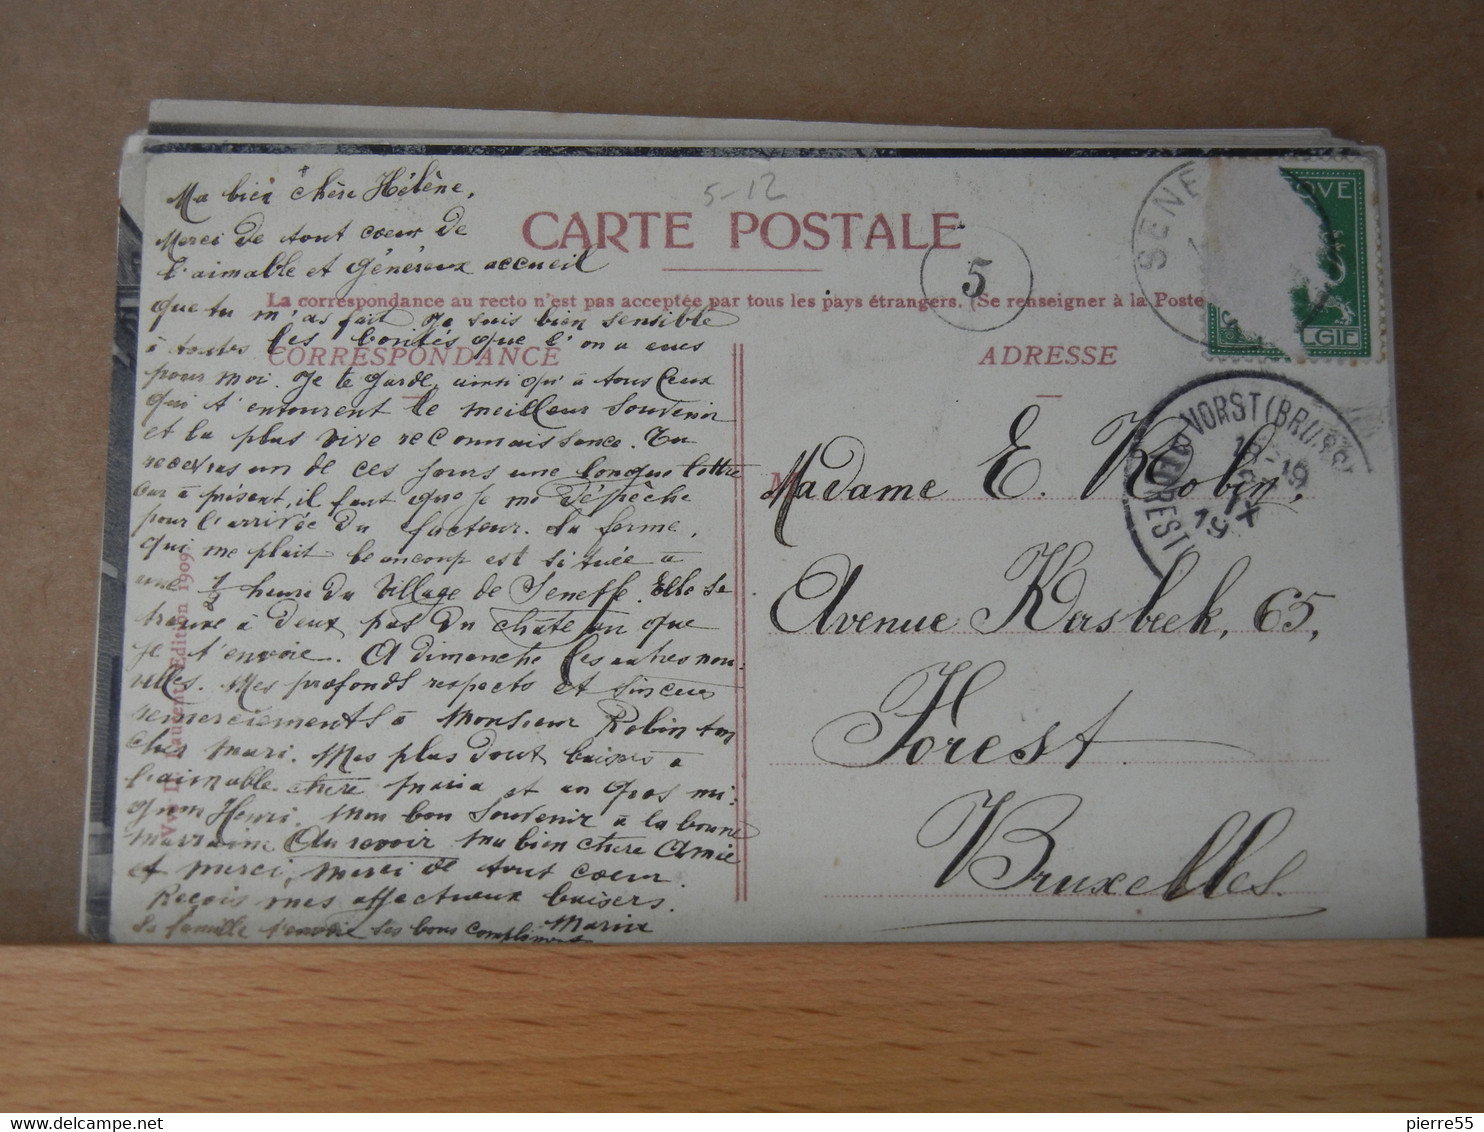 Ma bien chère Hélène,
Merci de tout coeur de
l'aimable et généreux accueil
que tu m'as fait je suis bien sensible
à toutes les bontés que l'on a eues
pour moi. Je te garde, ainsi qu'à tous ceux
qui t'entourent le meilleur souvenir
et la plus vive reconnaissance. Tu
recevras un de ces jours une longue lettre
car à présent, il faut que je me dépêche
pour l'arrivée du facteur. La ferme,
qui me plait beaucoup est située à
une 1/2 heure du village de Seneffe. Elle se
trouve à deux pas du château que
je t'envoie. A dimanche les autres nou-
velles. Mes profonds respects et sincères
remerciements à Monsieur Robin ton
cher mari. Mes plus doux baisers à
l'aimable chère Maria et un gros mi-
gnon Henri. Mon bon souvenir à la bonne
marraine Au revoir ma bien chère Amie
et merci, merci de tout coeur.
Reçois mes affectueux baisers.
Maria
La famille t'envoie ses bons compliments
5-12
CARTE POSTALE
5
La correspondance au recto n'est pas acceptée par tous les pays étrangers. (Se renseigner à la Poste
CORRESPONDANCE
ADRESSE
Madame E. Robin,
Avenue Kersbeek, 65,
Forest
Bruxelles.
SENE
OVE
LGIE
VORST (BRUSS
FOREST
IX
19
Edition 1909
pierre55
delcampe.net